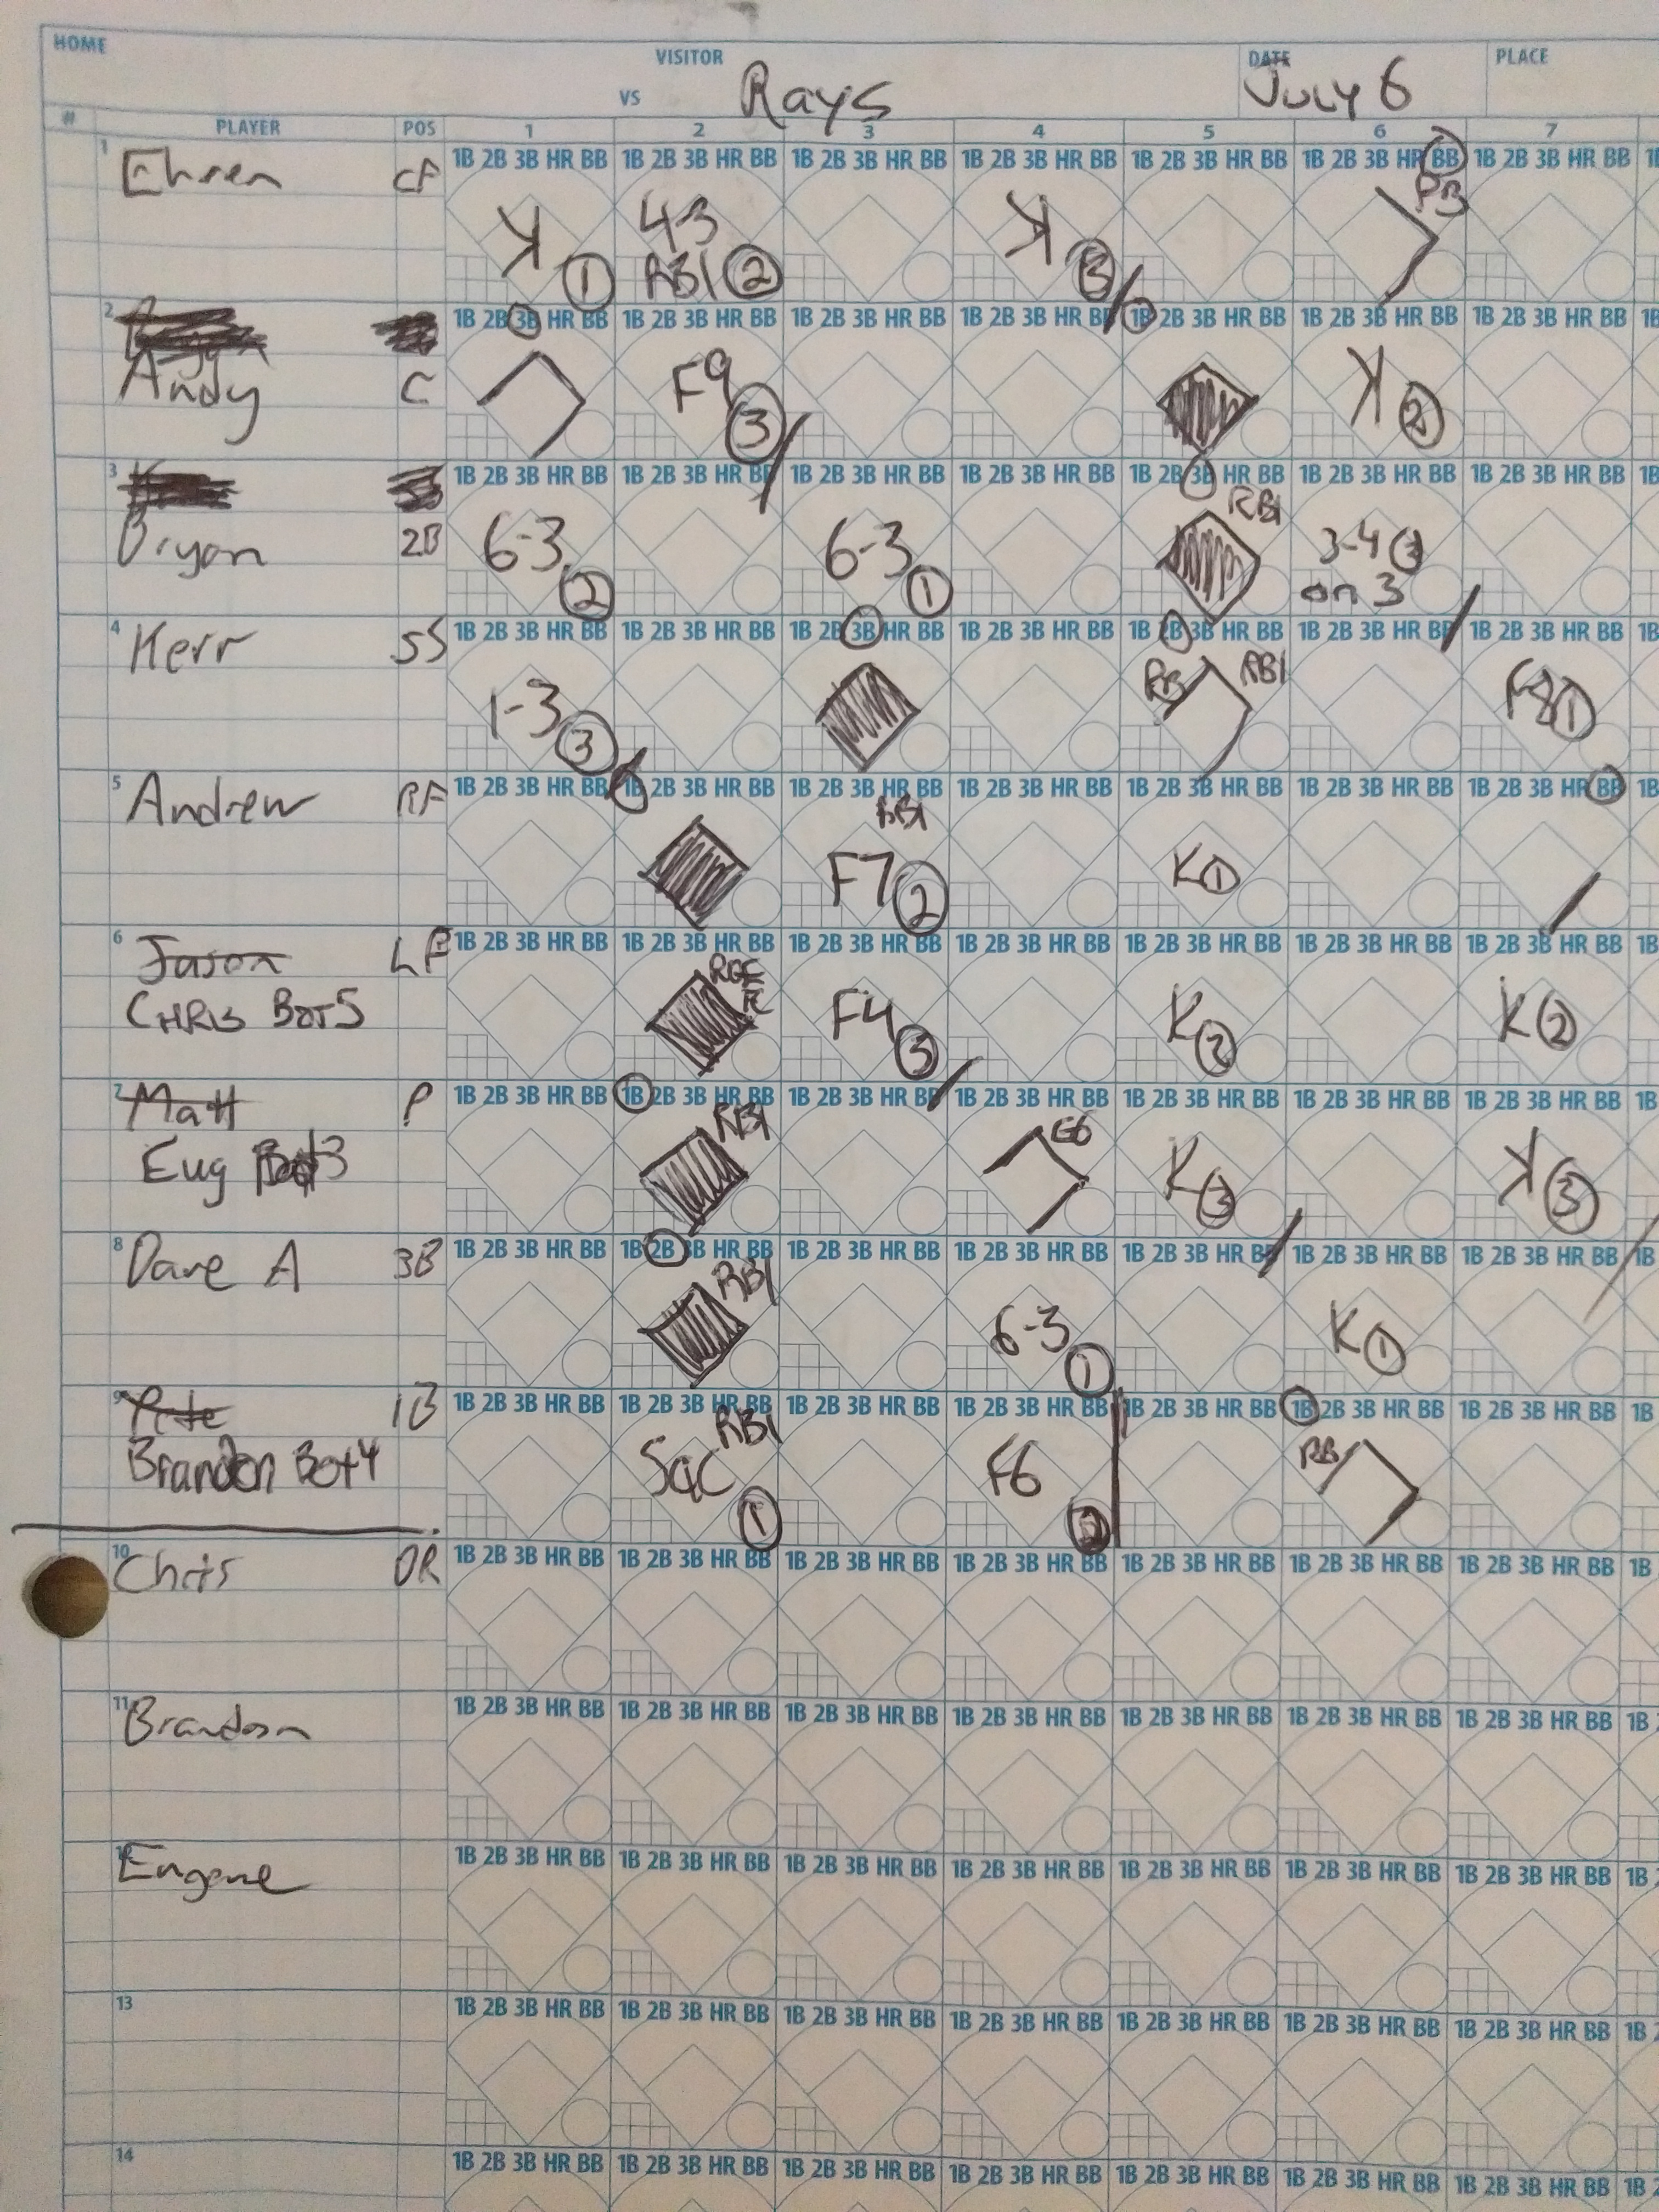 HOME VISITOR DATE PLACE
VS Rays July 6
# PLAYER POS 1 2 3 4 5 6 7
1 1B 2B 3B HR BB 1B 2B 3B HR BB 1B 2B 3B HR BB 1B 2B 3B HR BB 1B 2B 3B HR BB 1B 2B 3B HR BB 1B 2B 3B HR BB
Ehren CF K 1 4-3 RBI 2 K 3 PB
2 1B 2B 3B HR BB 1B 2B 3B HR BB 1B 2B 3B HR BB 1B 2B 3B HR BB 1B 2B 3B HR BB 1B 2B 3B HR BB 1B 2B 3B HR BB 1B
Andy C F9 3 K 2
3 1B 2B 3B HR BB 1B 2B 3B HR BB 1B 2B 3B HR BB 1B 2B 3B HR BB 1B 2B 3B HR BB 1B 2B 3B HR BB 1B 2B 3B HR BB 1B
Bryan 2B 6-3 2 6-3 1 RBI 3-4 3 on 3
4 1B 2B 3B HR BB 1B 2B 3B HR BB 1B 2B 3B HR BB 1B 2B 3B HR BB 1B 2B 3B HR BB 1B 2B 3B HR BB 1B 2B 3B HR BB 1B
Kerr SS 1-3 3 PB RBI F8 1
5 1B 2B 3B HR BB 1B 2B 3B HR BB 1B 2B 3B HR BB 1B 2B 3B HR BB 1B 2B 3B HR BB 1B 2B 3B HR BB 1B 2B 3B HR BB 1B
Andrew RF RBI F7 2 K 1
6 1B 2B 3B HR BB 1B 2B 3B HR BB 1B 2B 3B HR BB 1B 2B 3B HR BB 1B 2B 3B HR BB 1B 2B 3B HR BB 1B 2B 3B HR BB 1B
Jason LF
CHRIS BOT5 F4 3 K 2 K 2
7 1B 2B 3B HR BB 1B 2B 3B HR BB 1B 2B 3B HR BB 1B 2B 3B HR BB 1B 2B 3B HR BB 1B 2B 3B HR BB 1B 2B 3B HR BB 1B
Matt P
Eug Bot3 RBI E6 K 3 K 3
8 1B 2B 3B HR BB 1B 2B 3B HR BB 1B 2B 3B HR BB 1B 2B 3B HR BB 1B 2B 3B HR BB 1B 2B 3B HR BB 1B 2B 3B HR BB 1B
Dave A 3B RBI 6-3 1 K 1
9 1B 2B 3B HR BB 1B 2B 3B HR BB 1B 2B 3B HR BB 1B 2B 3B HR BB 1B 2B 3B HR BB 1B 2B 3B HR BB 1B 2B 3B HR BB 1B
Pete 1B
Brandon Bot4 Sac RBI 1 F6 2 PB
10 1B 2B 3B HR BB 1B 2B 3B HR BB 1B 2B 3B HR BB 1B 2B 3B HR BB 1B 2B 3B HR BB 1B 2B 3B HR BB 1B 2B 3B HR BB 1B
Chris OR
11 1B 2B 3B HR BB 1B 2B 3B HR BB 1B 2B 3B HR BB 1B 2B 3B HR BB 1B 2B 3B HR BB 1B 2B 3B HR BB 1B 2B 3B HR BB 1B
Brandon
1B 2B 3B HR BB 1B 2B 3B HR BB 1B 2B 3B HR BB 1B 2B 3B HR BB 1B 2B 3B HR BB 1B 2B 3B HR BB 1B 2B 3B HR BB 1B
Eugene
13 1B 2B 3B HR BB 1B 2B 3B HR BB 1B 2B 3B HR BB 1B 2B 3B HR BB 1B 2B 3B HR BB 1B 2B 3B HR BB 1B 2B 3B HR BB 1B
14 1B 2B 3B HR BB 1B 2B 3B HR BB 1B 2B 3B HR BB 1B 2B 3B HR BB 1B 2B 3B HR BB 1B 2B 3B HR BB 1B 2B 3B HR BB 1B